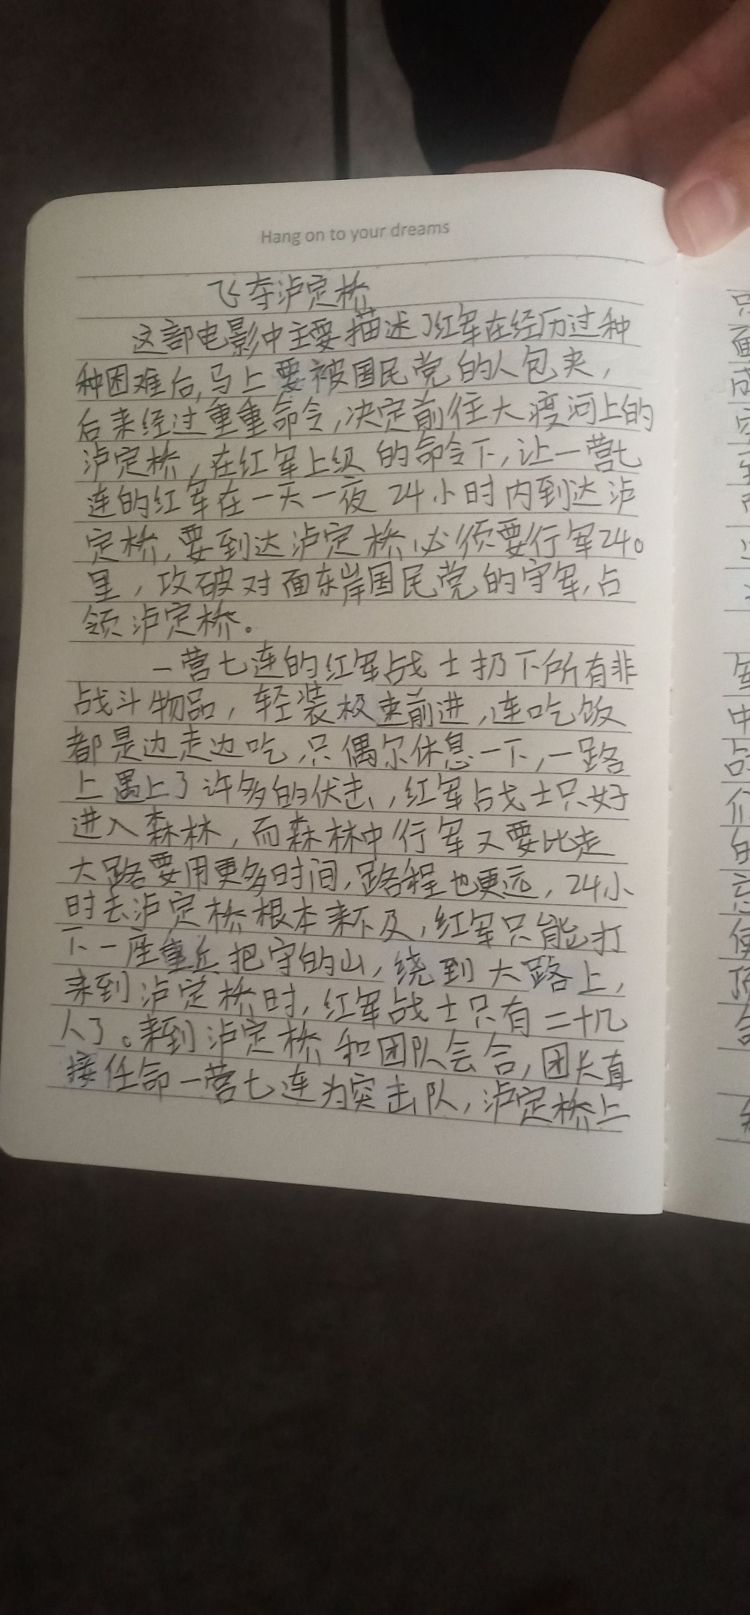 Hang on to your dreams
飞夺泸定桥
这部电影中主要描述了红军在经历过种
种困难后,马上要被国民党的人包夹,
后来经过重重命令,决定前往大渡河上的
泸定桥,在红军上级的命令下,让一营七
连的红军在一天一夜24小时内到达泸
定桥,要到达泸定桥必须要行军240
里,攻破对面东岸国民党的守军,占
领泸定桥。
一营七连的红军战士扔下所有非
战斗物品,轻装极速前进,连吃饭
都是边走边吃,只偶尔休息一下,一路
上遇上了许多的伏击,红军战士只好
进入森林,而森林中行军又要比走
大路要用更多时间,路程也更远,24小
时去泸定桥根本来不及,红军只能打
下一座重兵把守的山,绕到大路上,
来到泸定桥时,红军战士只有二十几
人了。来到泸定桥和团队会合,团长直
接任命一营七连为突击队,泸定桥上